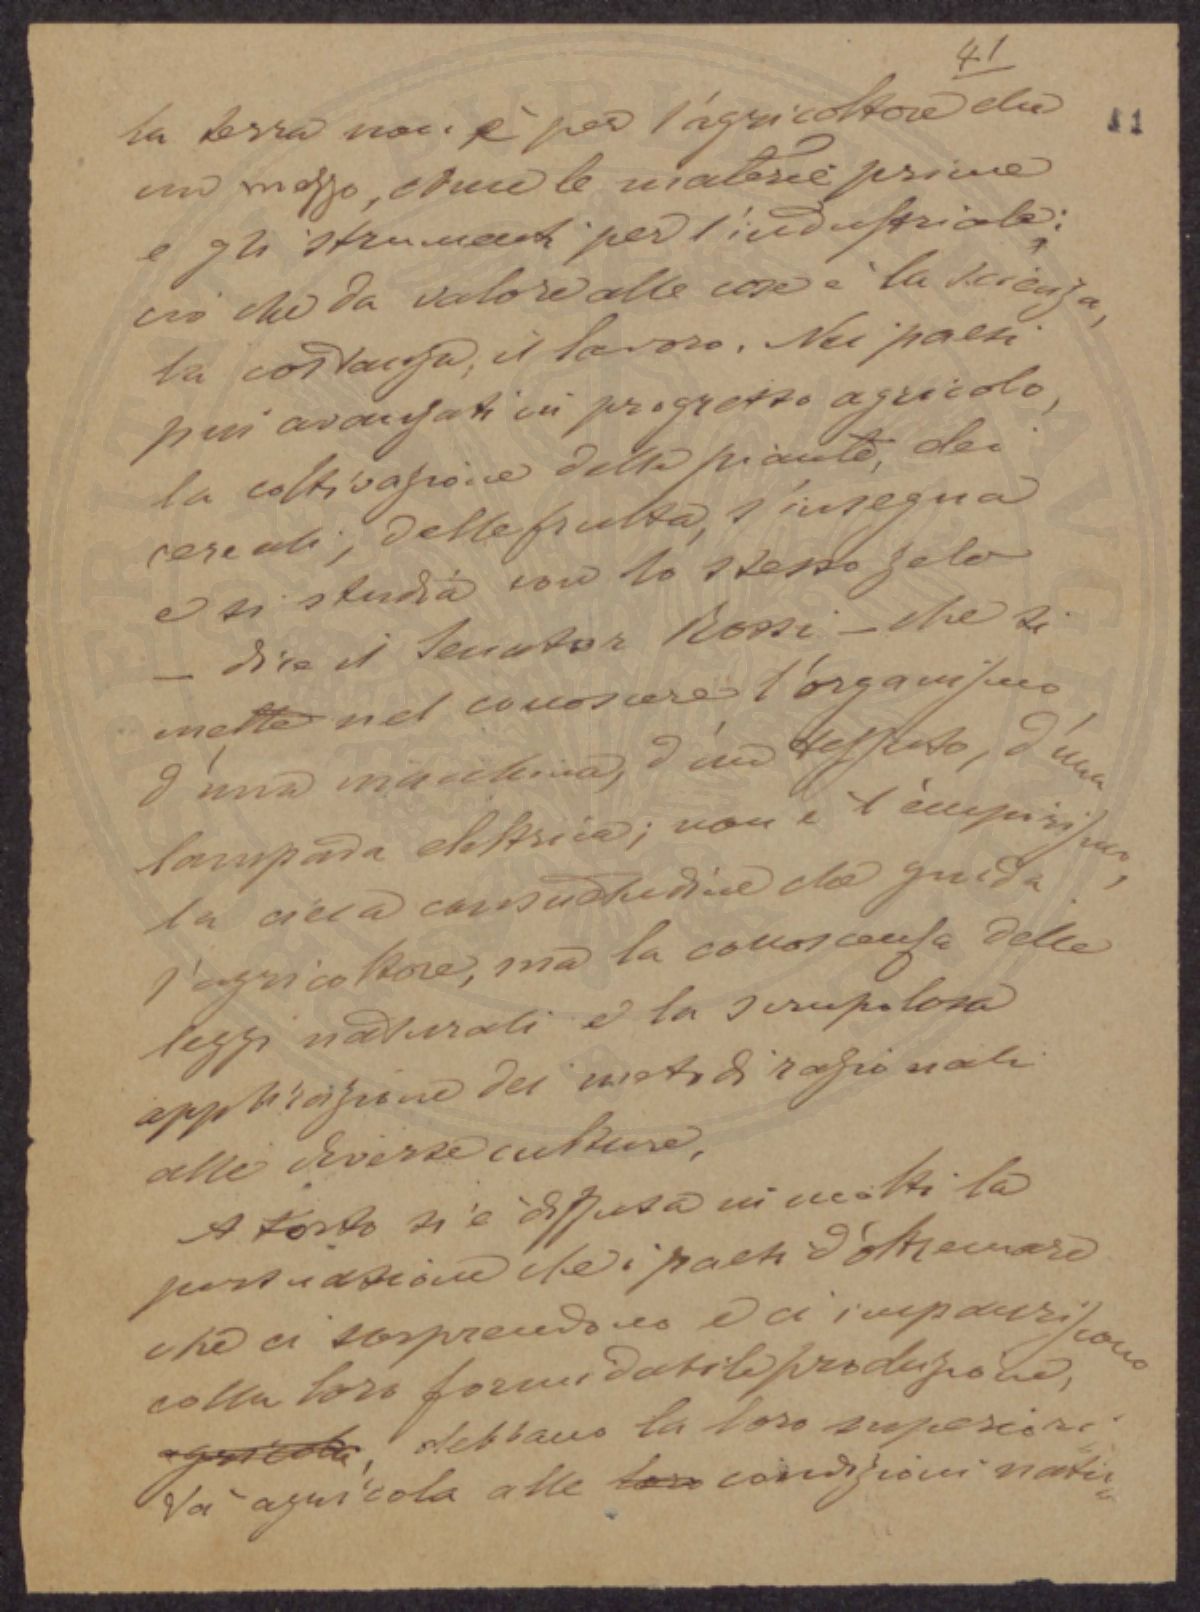 41
11
la terra non è per l'agricoltore che
un mezzo, come le materie prime
e gli strumenti per l'industriale;
ciò che da valore alle cose è la scienza,
la costanza, il lavoro. Nei paesi
più avanzati in progresso agricolo,
la coltivazione delle piante, dei
cereali, delle frutta, s'insegna
e si studia con lo stesso zelo
— dice il Senator Rossi — che si
mette nel conoscere l'organismo
d'una macchina, d'un tessuto, d'una
lampada elettrica; non è l'empirismo,
la cieca consuetudine che guida
l'agricoltore, ma la conoscenza delle
leggi naturali e la scrupolosa
applicazione dei metodi razionali
alle diverse culture.
A torto si è diffusa in molti la
persuasione che i paesi d'oltremare
che ci sorprendono e ci impauriscono
colla loro formidabile produzione,
agricola, debbano la loro superiori-
tà agricola alle loro condizioni natu-